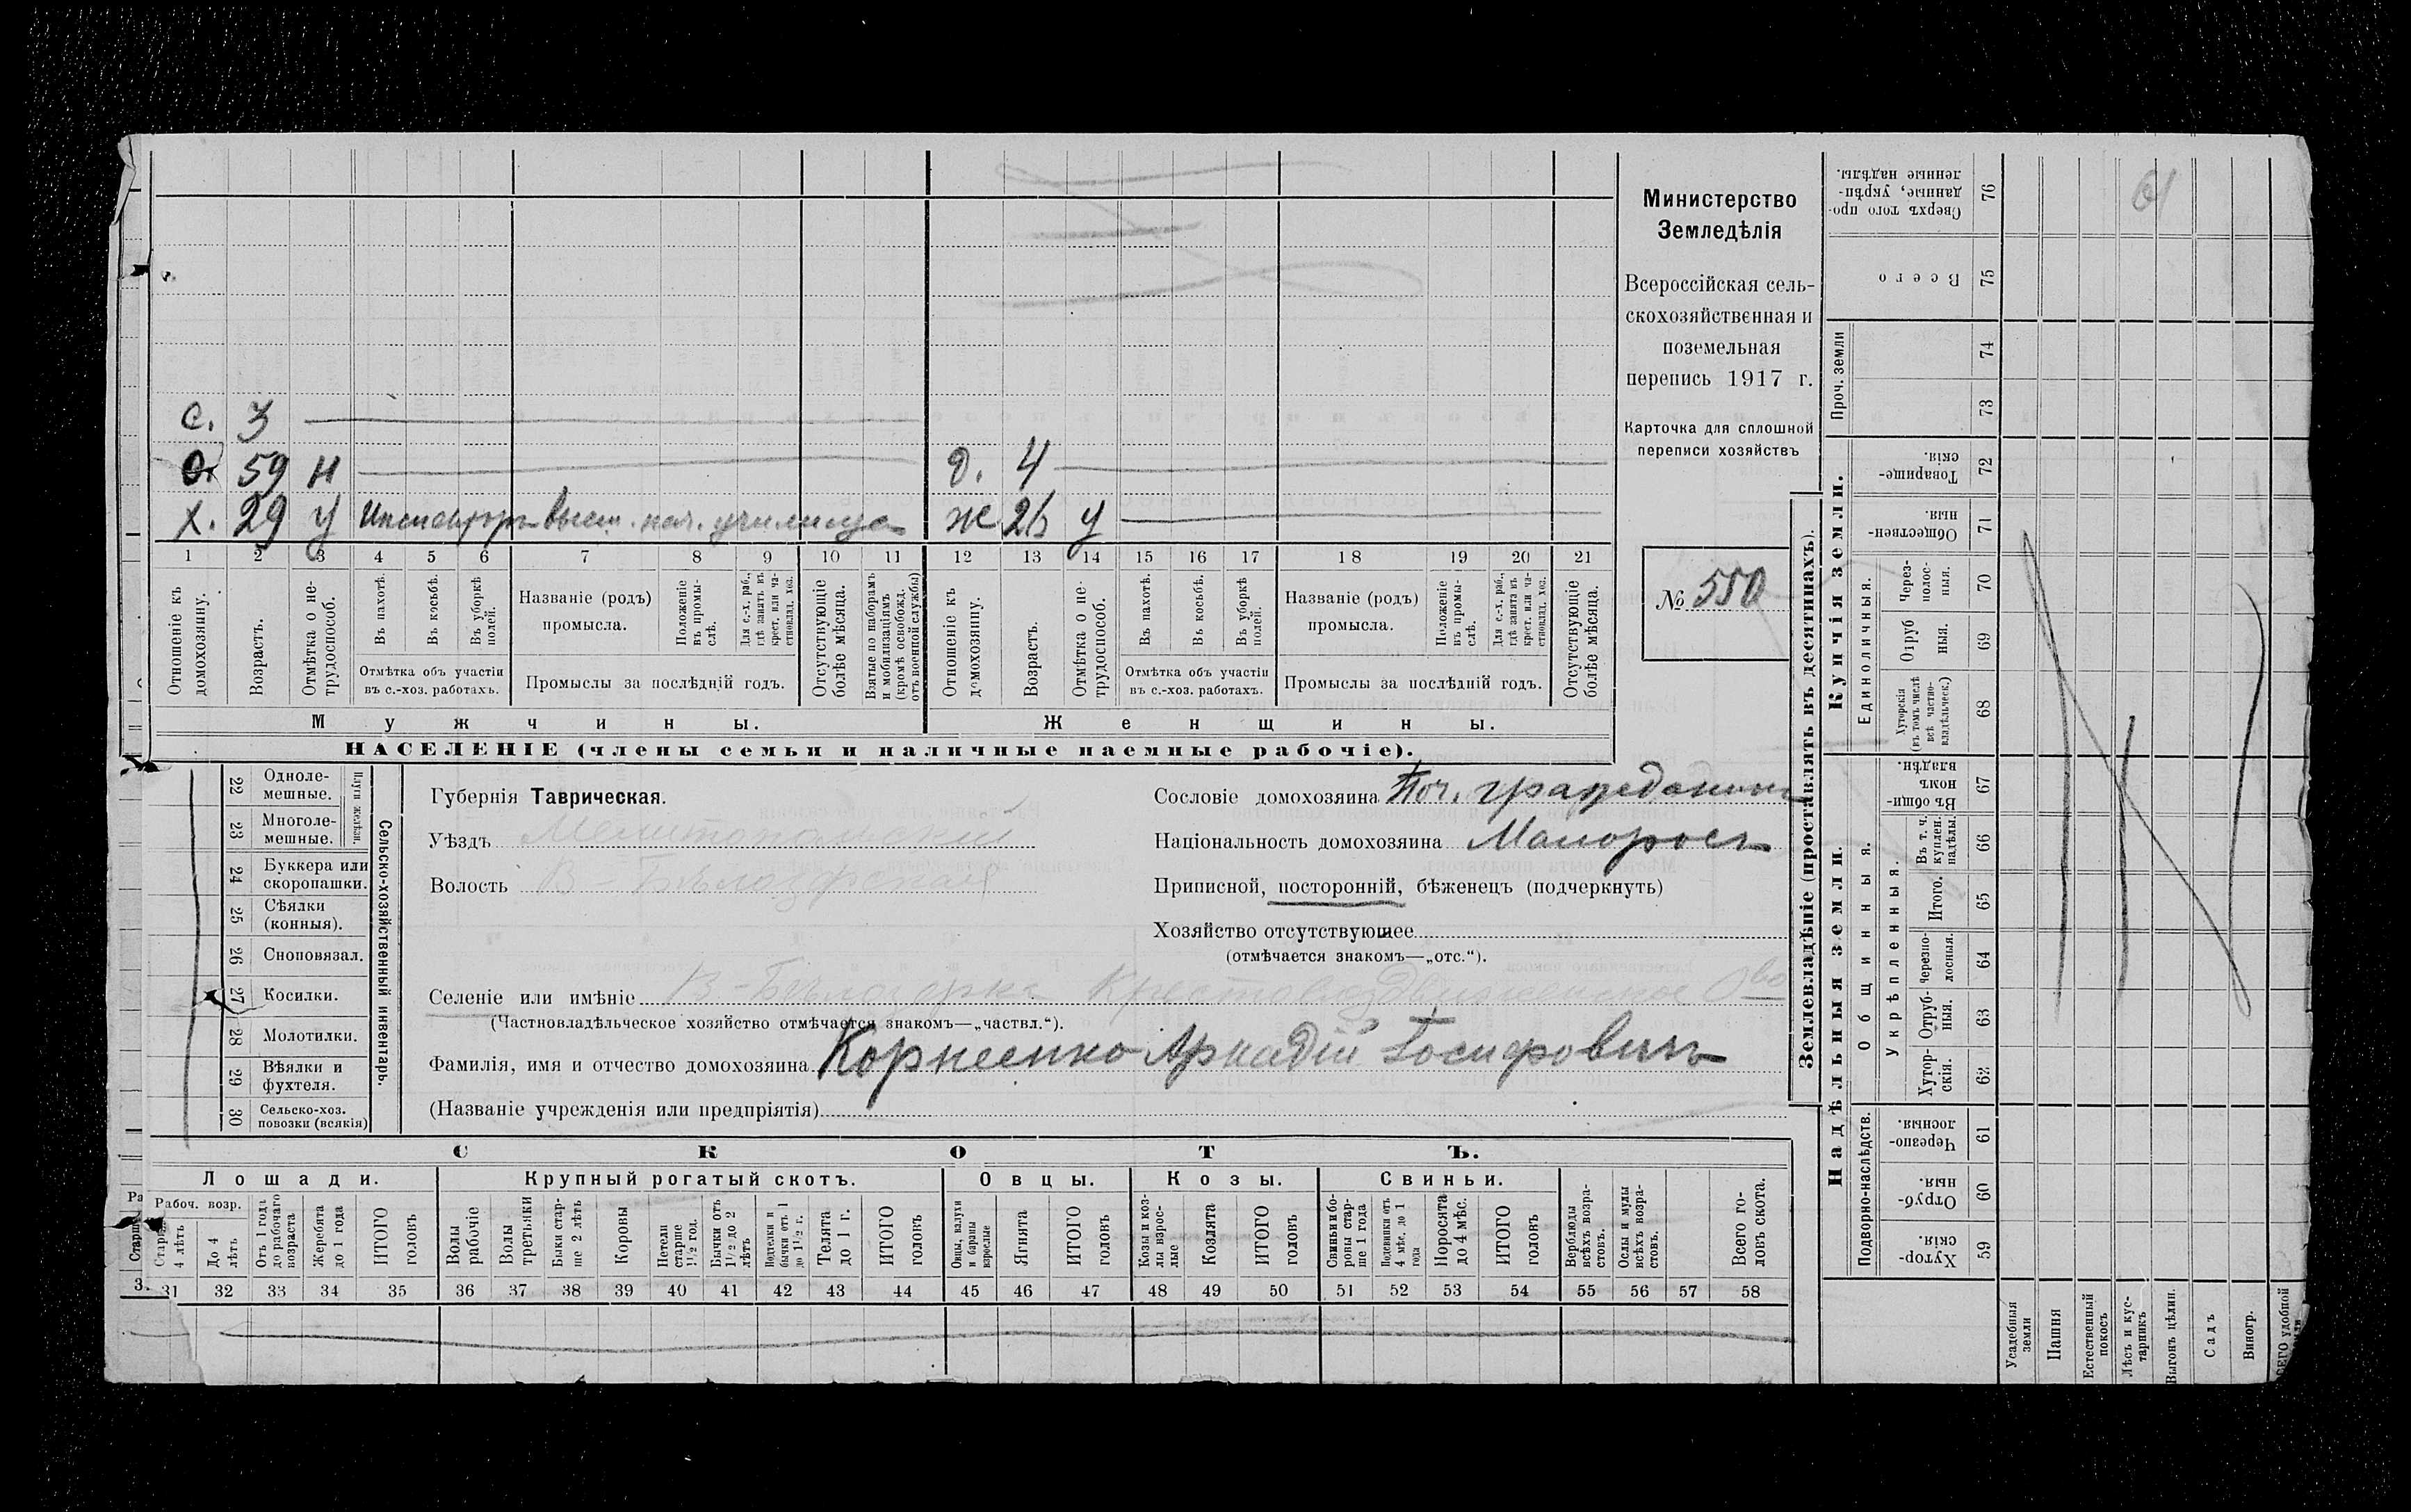 с. 3
о. 59 н
д. 4
х. 29 у Инспекторъ высш. нач. училища
ж 26 у
1 2 3 4 5 6 7 8 9 10 11 12 13 14 15 16 17 18 19 20 21
Отношеніе къ домохозяину.
Возрастъ.
Отмѣтка о не-трудоспособ.
Въ пахотѣ.
Въ косьбѣ.
Въ уборкѣ полей.
Отмѣтка объ участіи
въ с.-хоз. работахъ.
Названіе (родъ)
промысла.
Положеніе въ промы-слѣ.
Для с.-х. раб., гдѣ занятъ въ крест. или ча-стновлад. хоз.
Промыслы за послѣдній годъ.
Отсутствующіе болѣе мѣсяца.
Взятые по наборамъ и мобилизаціямъ (кромѣ освобожд. отъ военной службы)
Отношеніе къ домохозяину.
Возрастъ.
Отмѣтка о не-трудоспособ.
Въ пахотѣ.
Въ косьбѣ.
Въ уборкѣ полей.
Отмѣтка объ участіи
въ с.-хоз. работахъ.
Названіе (родъ)
промысла.
Положеніе въ промы-слѣ.
Для с.-х. раб., гдѣ занята въ крест. или ча-стновлад. хоз.
Промыслы за послѣдній годъ.
Отсутствующіе болѣе мѣсяца.
Мужчины.
Женщины.
НАСЕЛЕНІЕ (члены семьи и наличные наемные рабочіе).
Министерство
Земледѣлія
Всероссійская сель-
скохозяйственная и
поземельная
перепись 1917 г.
Карточка для сплошной
переписи хозяйствъ
№ 550
22 Одноле-мешные.
23 Многоле-мешные.
Плуги желѣзн.
24 Буккера или скоропашки.
25 Сѣялки (конныя).
26 Сноповязал.
27 Косилки.
28 Молотилки.
29 Вѣялки и фухтеля.
30 Сельско-хоз. повозки (всякія)
Сельско-хозяйственный инвентарь.
Губернія Таврическая.
Уѣздъ Мелитопольскій
Волость В-Бѣлозерская
Сословіе домохозяина Поч. гражданинъ
Національность домохозяина Малороссъ
Приписной, посторонній, бѣженецъ (подчеркнуть)
Хозяйство отсутствующее
(отмѣчается знакомъ—„отс.“).
Селеніе или имѣніе В-Бѣлозерка Крестовоздвиженское О-во
(Частновладѣльческое хозяйство отмѣчается знакомъ—„частвл.“).
Фамилія, имя и отчество домохозяина Корнеенко Аркадій Іосифовичъ
(Названіе учрежденія или предпріятія)
СКОТЪ.
Лошади.
Крупный рогатый скотъ.
Овцы.
Козы.
Свиньи.
Рабоч. возр.
4 лѣтъ
До 4 лѣтъ
Отъ 1 года до рабочаго возраста
Жеребята до 1 года
ИТОГО головъ
Волы рабочіе
Волы третьяки
Быки стар-ше 2 лѣтъ
Коровы
Нетели старше 1 1/2 год.
Бычки отъ 1 1/2 до 2 лѣтъ
Подтелки и бычки отъ 1 до 1 1/2 г.
Телята до 1 г.
ИТОГО головъ
Овцы, валухи и бараны взрослые
Ягнята
ИТОГО головъ
Козы и коз-лы взрос-лые
Козлята
ИТОГО головъ
Свиньи и бо-ровы стар-ше 1 года
Подсвинки отъ 4 мѣс. до 1 года
Поросята до 4 мѣс.
ИТОГО головъ
Верблюды всѣхъ возра-стовъ.
Ослы и мулы всѣхъ возра-стовъ.
Всего го-ловъ скота.
31 32 33 34 35 36 37 38 39 40 41 42 43 44 45 46 47 48 49 50 51 52 53 54 55 56 57 58
Землевладѣніе (проставлять въ десятинахъ).
Купчія земли.
Надѣльныя земли.
Сверхъ того про-данные, укрѣп-ленные надѣлы. 76
Всего 75
Проч. земли
74
73
Товарище-скія. 72
Обществен-ныя. 71
Единоличныя.
Через-полос-ныя. 70
Отруб ныя. 69
Хуторскія (въ томъ числѣ всѣ частно-владѣльческ.) 68
Общинныя.
Въ общин-номъ владѣн. 67
Укрѣпленныя.
Въ т. ч. куплен. надѣлы. 66
Итого. 65
Черезпо-лосныя. 64
Отруб-ныя. 63
Хутор-скія. 62
Подворно-наслѣдств.
Черезпо-лосныя. 61
Отруб-ныя. 60
Хутор-скія. 59
Усадебныя земли
Пашня
Естественный покосъ
Лѣсъ и кус-тарникъ
Выгонъ цѣлин.
Садъ
Виногр.
61